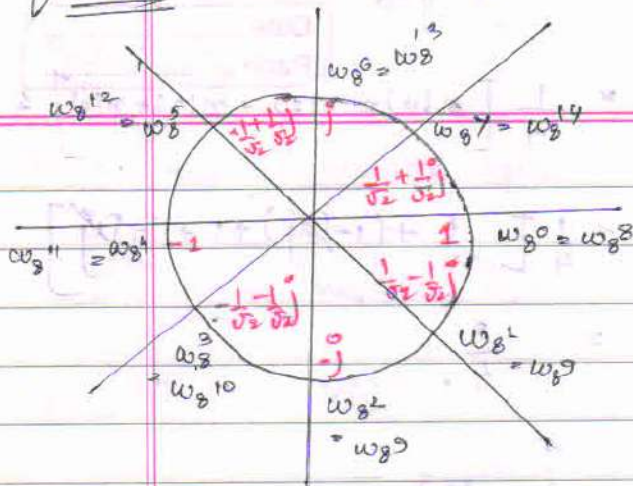 w8^6 = w8^13
w8^12
= w8^5
-1/√2 + 1/√2 j
j
w8^7 = w8^14
1/√2 + 1/√2 j
w8^11 = w8^4
-1
1
w8^0 = w8^8
-1/√2 - 1/√2 j
1/√2 - 1/√2 j
w8^1
= w8^9
w8^3
= w8^10
-j
w8^2
= w8^9